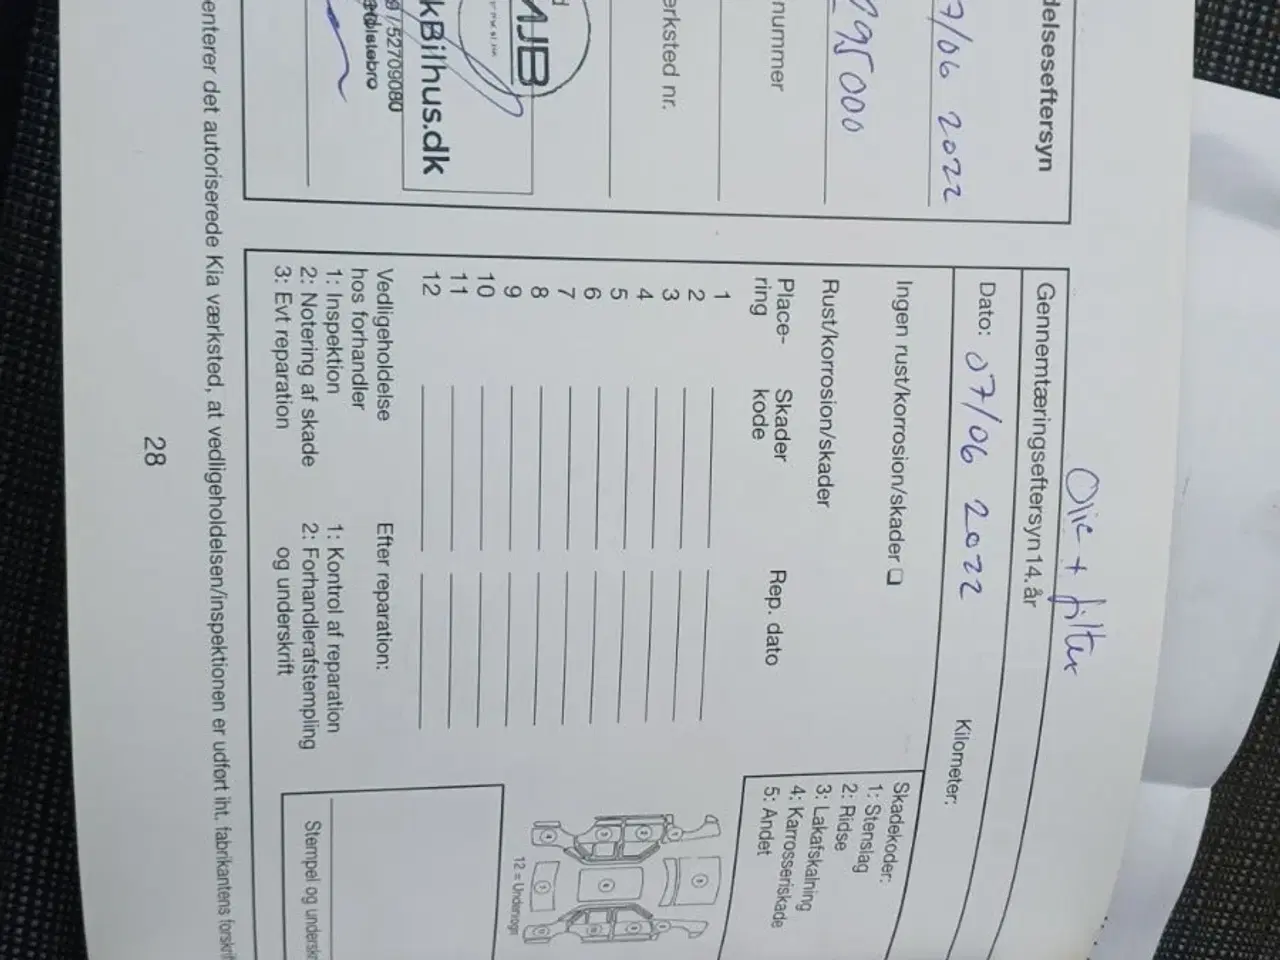 delseseftersyn
7/06 2022
nummer
295000
erksted nr.
MJB
kBilhus.dk
9 / 52709080
enterer det autoriserede Kia værksted, at vedligeholdelsen/inspektionen er udført iht. fabrikantens forskrift
Olie + filter
Gennemtæringseftersyn 14. år
Dato: 07/06 2022
Kilometer:
Ingen rust/korrosion/skader ❑
Rust/korrosion/skader
Place-
ring
Skader
kode
Rep. dato
1
2
3
4
5
6
7
8
9
10
11
12
Skadekoder:
1: Stenslag
2: Ridse
3: Lakafskalning
4: Karrosseriskade
5: Andet
12 = Undervogn
Vedligeholdelse
hos forhandler
1: Inspektion
2: Notering af skade
3: Evt reparation
Efter reparation:
1: Kontrol af reparation
2: Forhandlerafstempling
og underskrift
Stempel og underskr
28